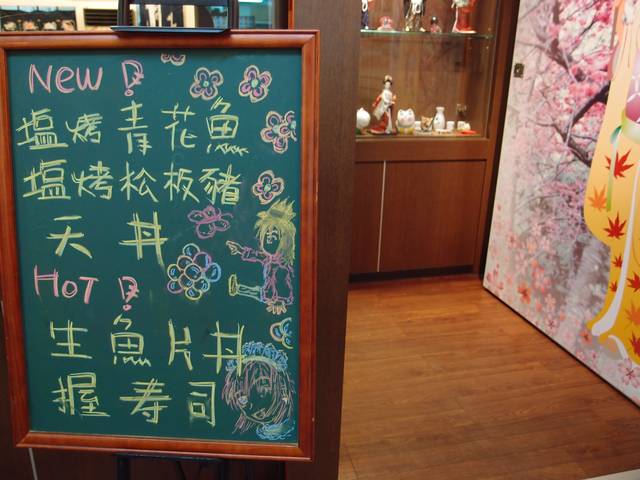 New!
塩烤青花魚
塩烤松板豬
天丼
HOT!
生魚片丼
握寿司